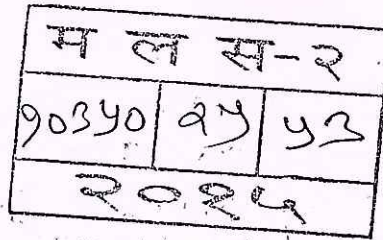 म ल स-२
१०३५० २५ ५३
२०१५